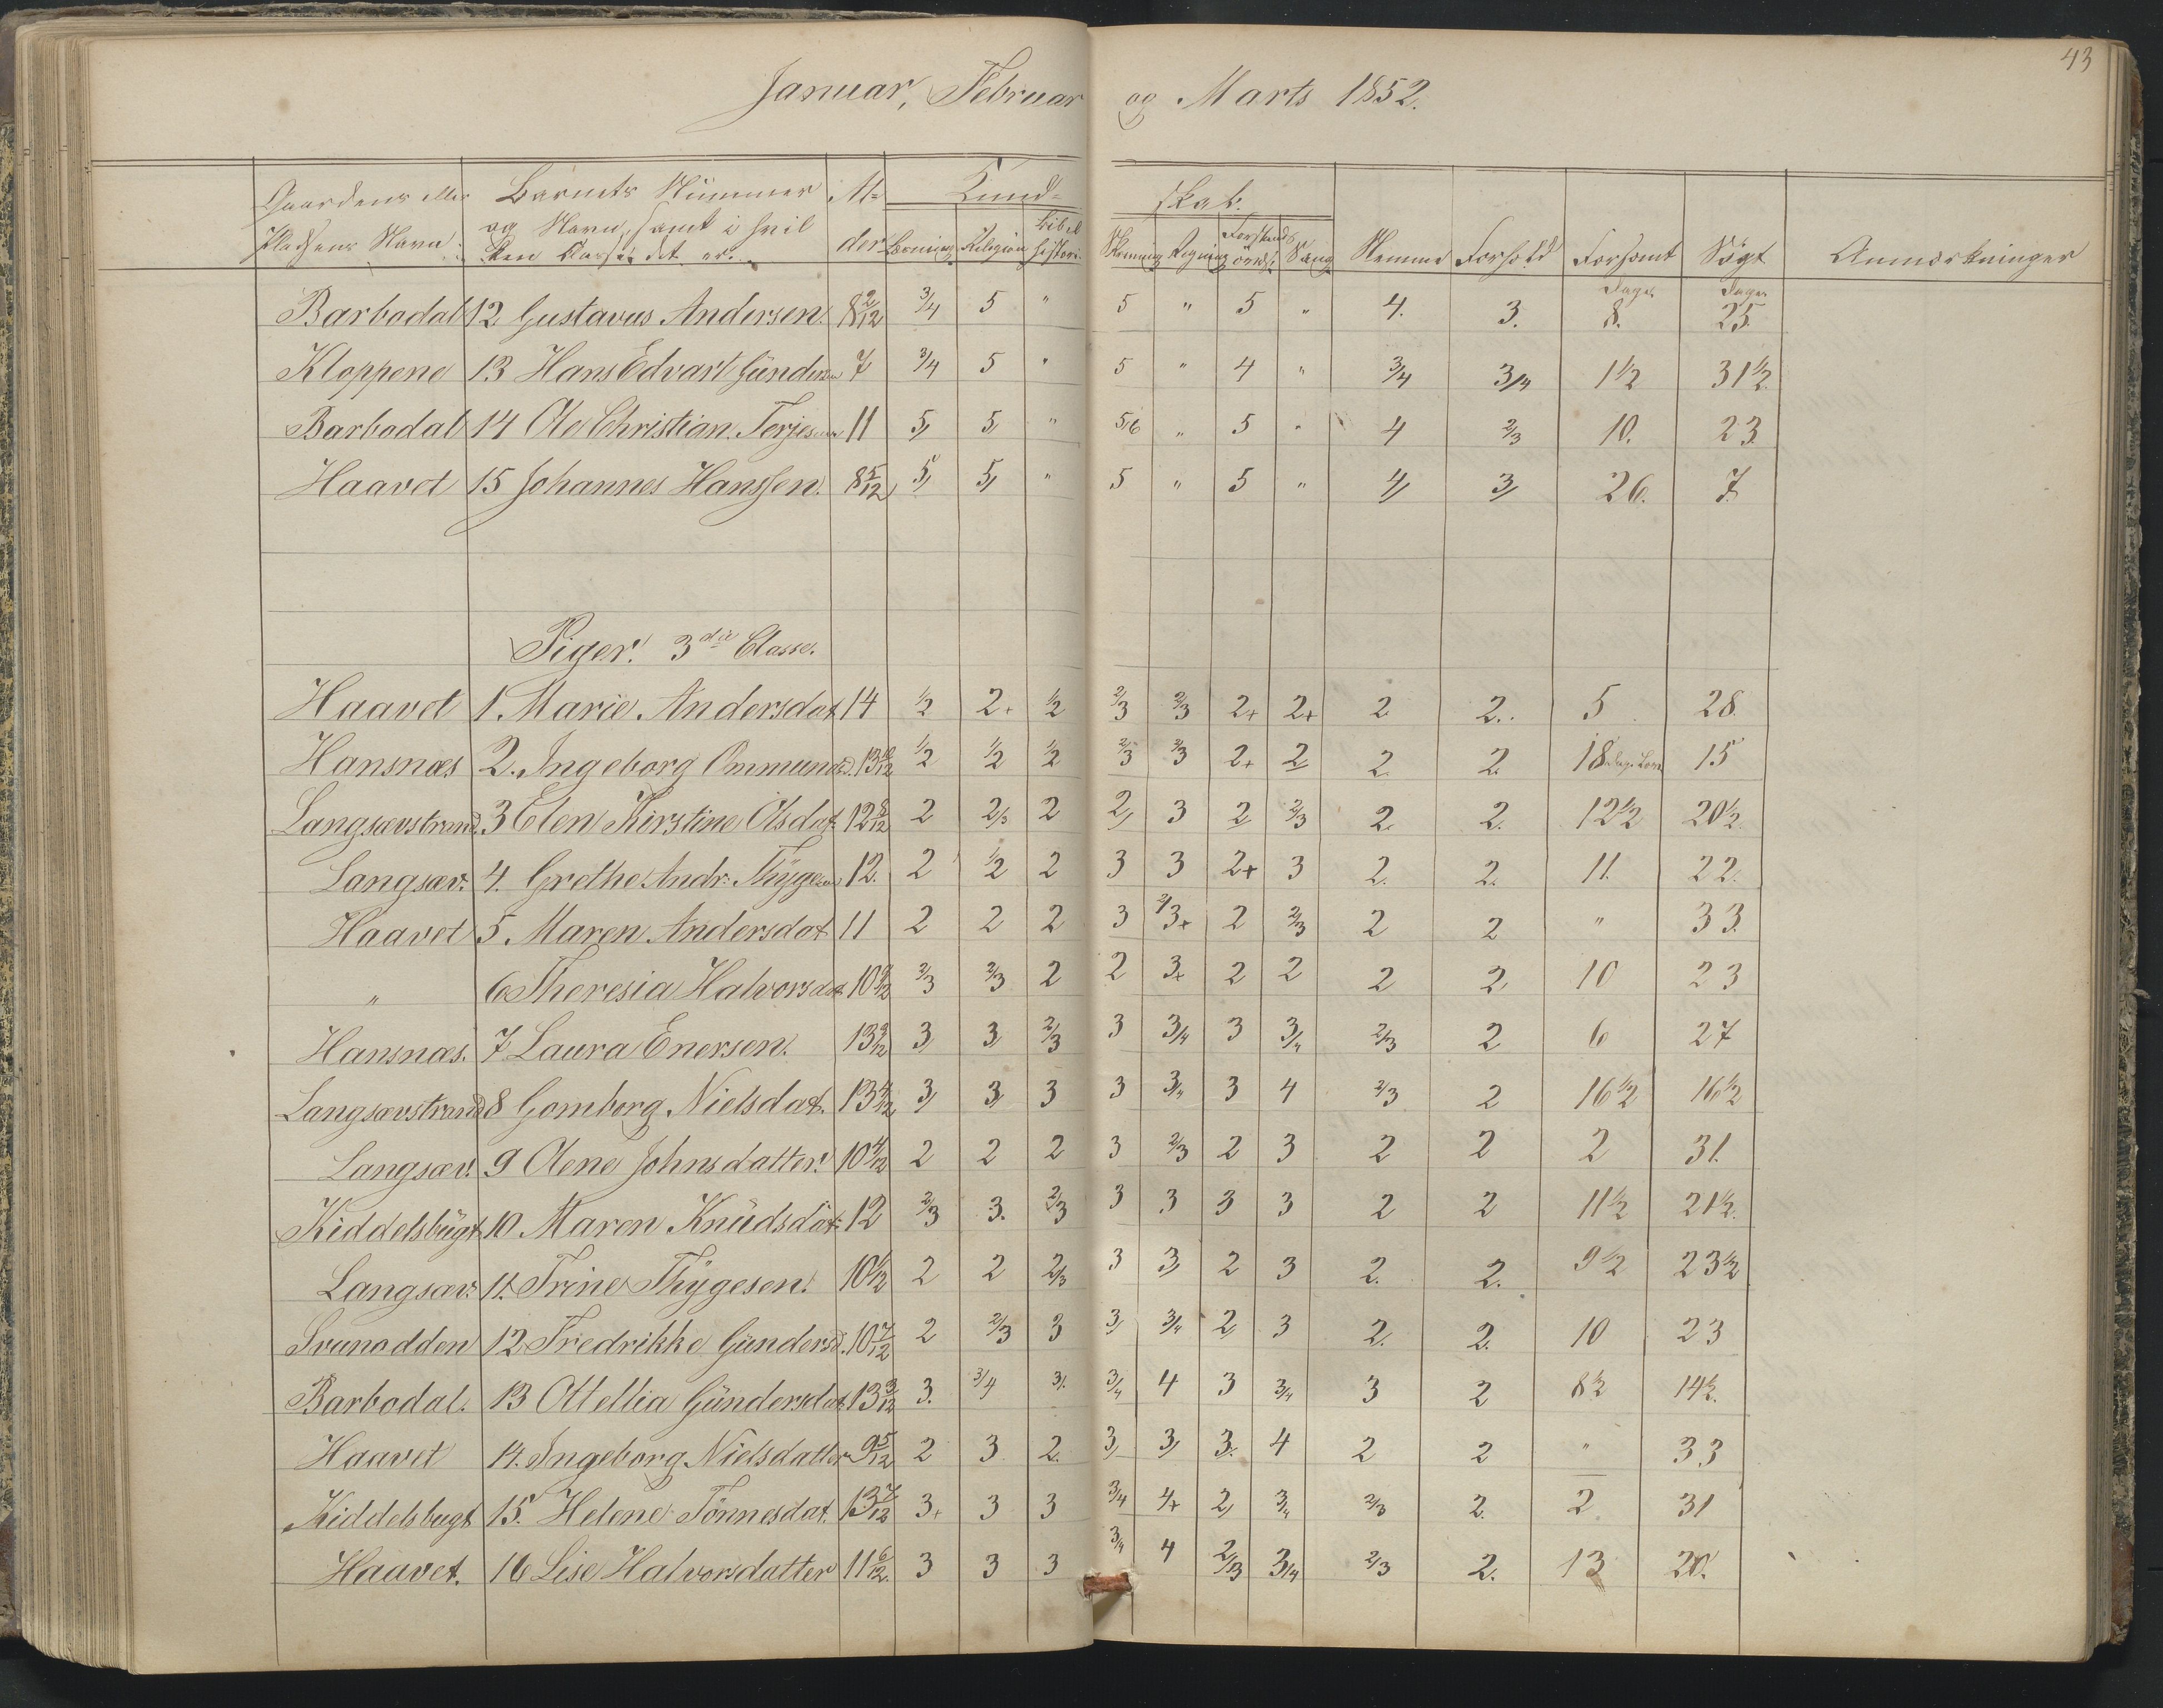 43
Januar, Februar og Marts 1852.
Gaardens eller Pladsens Navn. Barnets Nummer og Navn, samt i hvilken Classe det er. Alder Kundskab. Nemme Forhold Forsømt Søgt Anmærkninger
Læsning Religion Bibelhistorie Skrivning Regning Forstandsøvelse Sang
Dage Dage
Barbodal 12 Gustavus Andersen. 8 2/12 3/4 5 " 5 " 5 " 4. 3. 8. 25.
Kloppene 13 Hans Edvart Gündersen 7 3/4 5 " 5 " 4 " 3/4 3/4 1 1/2 31 1/2
Barbodal 14 Ole Christian Terjesen 11 5, 5, " 5/6 " 5 " 4 2/3 10. 23
Haavet 15 Johannes Hanssen. 8 5/12 5, 5, " 5 " 5 " 4, 3, 26. 7.
Piger. 3die Classe.
Haavet 1. Marie Andersdat 14 1/2 2+ 1/2 2/3 2/3 2+ 2+ 2 2. 5 28
Hansnæs 2. Ingeborg Ommundsd. 13 10/12 1/2 1/2 1/2 2/3 2/3 2+ 2 2. 2. 18 15
Langsævstrand 3 Elen Kirstine Olsdat. 12 8/12 2 2/3 2 2, 3 2 2/3 2. 2. 12 1/2 20 1/2
Langsæv. 4. Grethe Andr. Thÿgesen 12. 2 1/2 2 3 3 2+ 3 2. 2. 11. 22.
Haavet 5. Maren Andersdat 11 2 2 2 3 2/3+ 2 2/3 2 2 " 33.
" 6 Theresia Halvorsdat 10 9/12 2/3 2/3 2 2 3+ 2 2 2 2 10 23
Hansnæs. 7 Laura Enersen. 13 9/12 3, 3, 2/3 3 3/4 3 3/4 2/3 2 6 27
Langsævstrand 8 Gomborg Nielsdat. 13 4/12 3, 3, 3 3 3/4 3 4 2/3 2 16 1/2 16 1/2
Langsæv. 9 Olene Johnsdatter 10 4/12 2 2 2 3 2/3 2 3 2 2 2 31.
Kiddelsbügt 10. Maren Knüdsdat: 12 2/3 3. 2/3 3 3 3 3 2 2 11 1/2 21 1/2.
Langsæv. 11. Trine Thÿgesen. 10 1/12 2 2 2/3 3 3, 2 3 2. 2. 9 1/2 23 1/2
Svenodden 12 Fredrikke Gündersd. 10 7/12 2 2/3 3 3, 3/4 2, 3 2. 2. 10 23
Barbodal. 13 Ottellia Gündersdat 13 3/12 3. 3/4 3. 3/4 4 3 3/4 3 2 8 1/2 14 1/2.
Haavet 14. Ingeborg Nielsdatter 9 5/12 2 3 2. 3, 3, 3. 4 2 2 " 33
Kiddelsbugt 15. Helene Tönnesdat. 13 7/12 3+ 3 3 3/4 4+ 2, 3/4 2/3 2. 2. 31
Haavet. 16 Lise Halvorsdatter 11 6/12 3 3 3 3/4 4 2/3 3/4 2/3 2. 13 20.